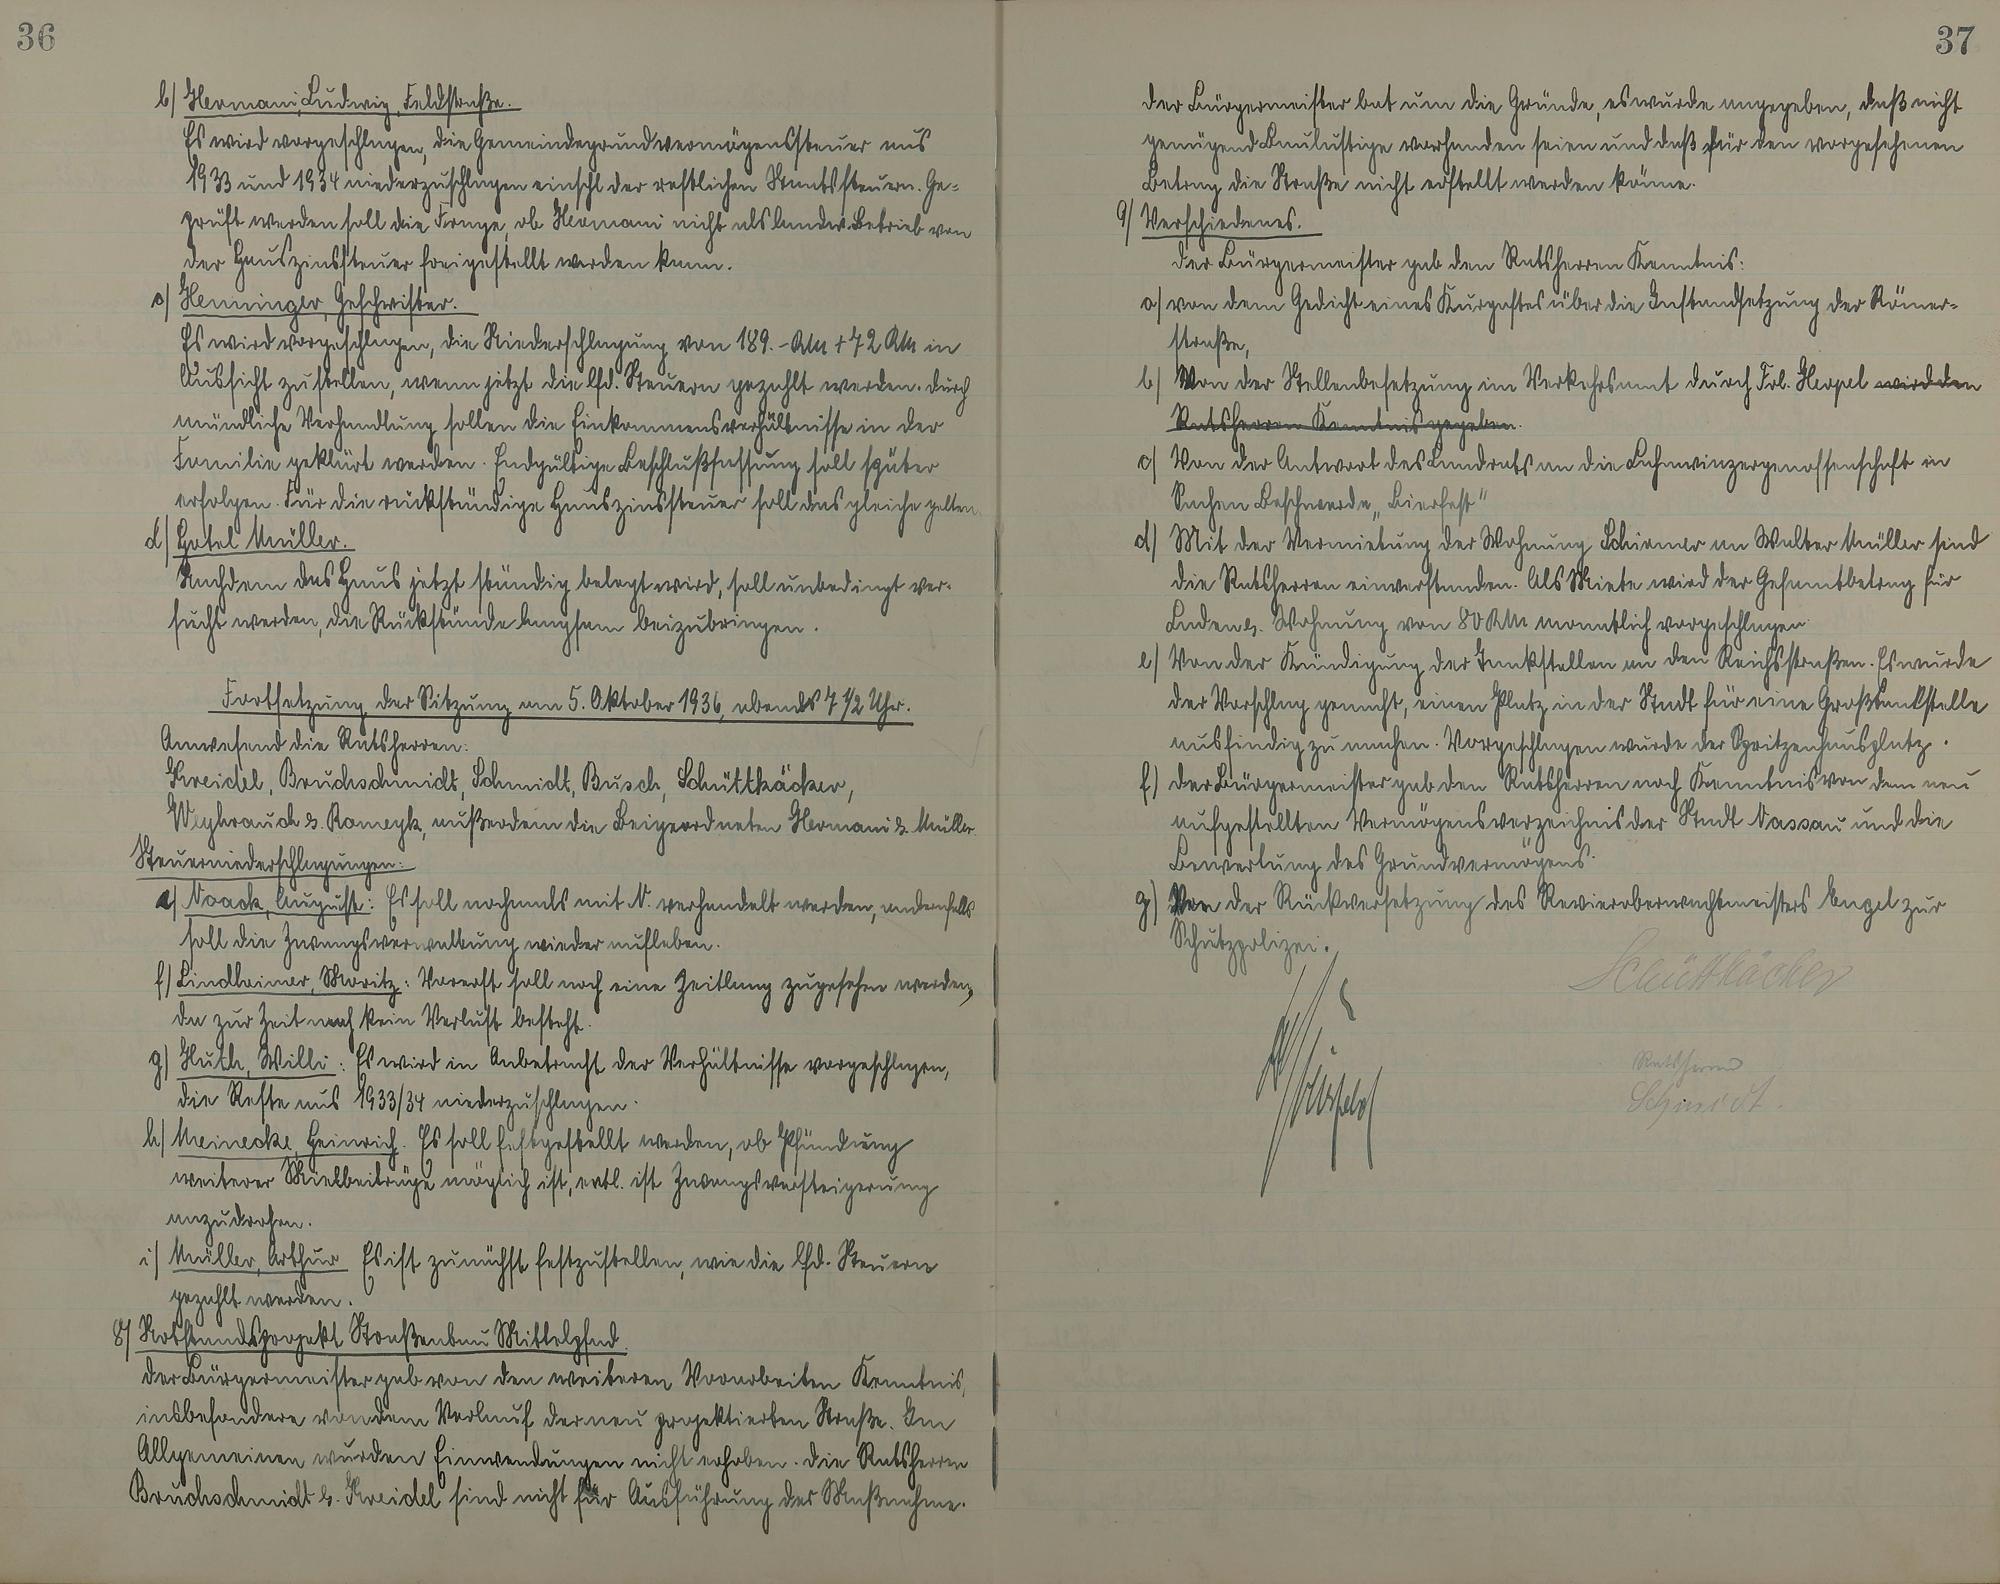 36
b) Hermani, Ludwig, Feldstraße.
Es wird vorgeschlagen, die Gemeindegrundvermögenssteuer aus
1933 und 1934 niederzuschlagen einschl der restlichen Staatssteuern. Ge-
prüft werden soll die Frage, ob Hermani nicht als landw. Betrieb von
der Hauszinssteuer freigestellt werden kann.
c) Henninger, Geschwister.
Es wird vorgeschlagen, die Niederschlagung von 189.- RM + 72 RM in
Aussicht zu stellen, wenn jetzt die lfd. Steuern gezahlt werden. Durch
mündliche Verhandlung sollen die Einkommensverhältnisse in der
Familie geklärt werden. Endgültige Beschlußfassung soll später
erfolgen. Für die rückständige Hauszinssteuer soll das gleiche gelten.
d) Hotel Müller.
Nachdem das Haus jetzt ständig belegt wird, soll unbedingt ver-
sucht werden, die Rückstände langsam beizubringen.
Fortsetzung der Sitzung am 5. Oktober 1936, abends 7 1/2 Uhr.
Anwesend die Ratsherren:
Kreidel, Bruchschmidt, Schmidt, Busch, Schüttkäcker,
Weyhrauch & Romeyk, außerdem die Beigeordneten Hermani & Müller.
Steuerniederschlagungen:
e) Noack, August: Es soll nochmals mit N. verhandelt werden, andernfalls
soll die Zwangsverwaltung wieder aufleben.
f) Lindheimer, Moritz: Vorerst soll noch eine Zeitlang zugesehen werden,
da zur Zeit noch kein Verlust besteht.
g) Huth, Willi: Es wird in Anbetracht der Verhältnisse vorgeschlagen,
die Reste aus 1933/34 niederzuschlagen.
h) Meinecke, Heinrich. Es soll festgestellt werden, ob Pfändung
weiterer Mietbeiträge möglich ist, evtl. ist Zwangsversteigerung
anzudrohen.
i) Müller, Arthur Es ist zunächst festzustellen, wie die lfd. Steuern
gezahlt werden.
8) Notstandsprojekt Straßenbau Mittelpfad.
Der Bürgermeister gab von den weiteren Vorarbeiten Kenntnis,
insbesondere von dem Verlauf der neu projektierten Straße. Im
Allgemeinen wurden Einwendungen nicht erhoben. Die Ratsherren
Bruchschmidt & Kreidel sind nicht für Ausführung der Maßnahme.
37
Der Bürgermeister bat um die Gründe, es wurde angegeben, daß nicht
genügend Baulustige vorhanden seien und daß für den vorgesehenen
Betrag die Straße nicht erstellt werden könne.
9) Verschiedenes.
Der Bürgermeister gab den Ratsherren Kenntnis:
a) von dem Gedicht eines Kurgastes über die Instandsetzung der Römer-
straße,
b) Von der Stellenbesetzung im Verkehrsamt durch Frl. Herpel wird den
Ratsherren Kenntnis gegeben.
c) Von der Antwort des Landrats an die Lahnwinzergenossenschaft in
Sachen Beschwerde „Bierfest"
d) Mit der Vermietung der Wohnung Schirmer an Walter Müller sind
die Ratsherren einverstanden. Als Miete wird der Gesamtbetrag für
Laden & Wohnung von 80 RM monatlich vorgeschlagen.
e) Von der Kündigung der Tankstellen an den Reichsstraßen. Es wurde
der Vorschlag gemacht, einen Platz in der Stadt für eine Großtankstelle
ausfindig zu machen. Vorgeschlagen wurde der Spritzenhausplatz.
f) Der Bürgermeister gab den Ratsherren noch Kenntnis von dem neu
aufgestellten Vermögensverzeichnis der Stadt Nassau und die
Bewertung des Grundvermögens.
g) Von der Rückversetzung des Revieroberwachtmeisters Engel zur
Schutzpolizei.
Schüttkäcker
Ratsherrn
Schmidt.